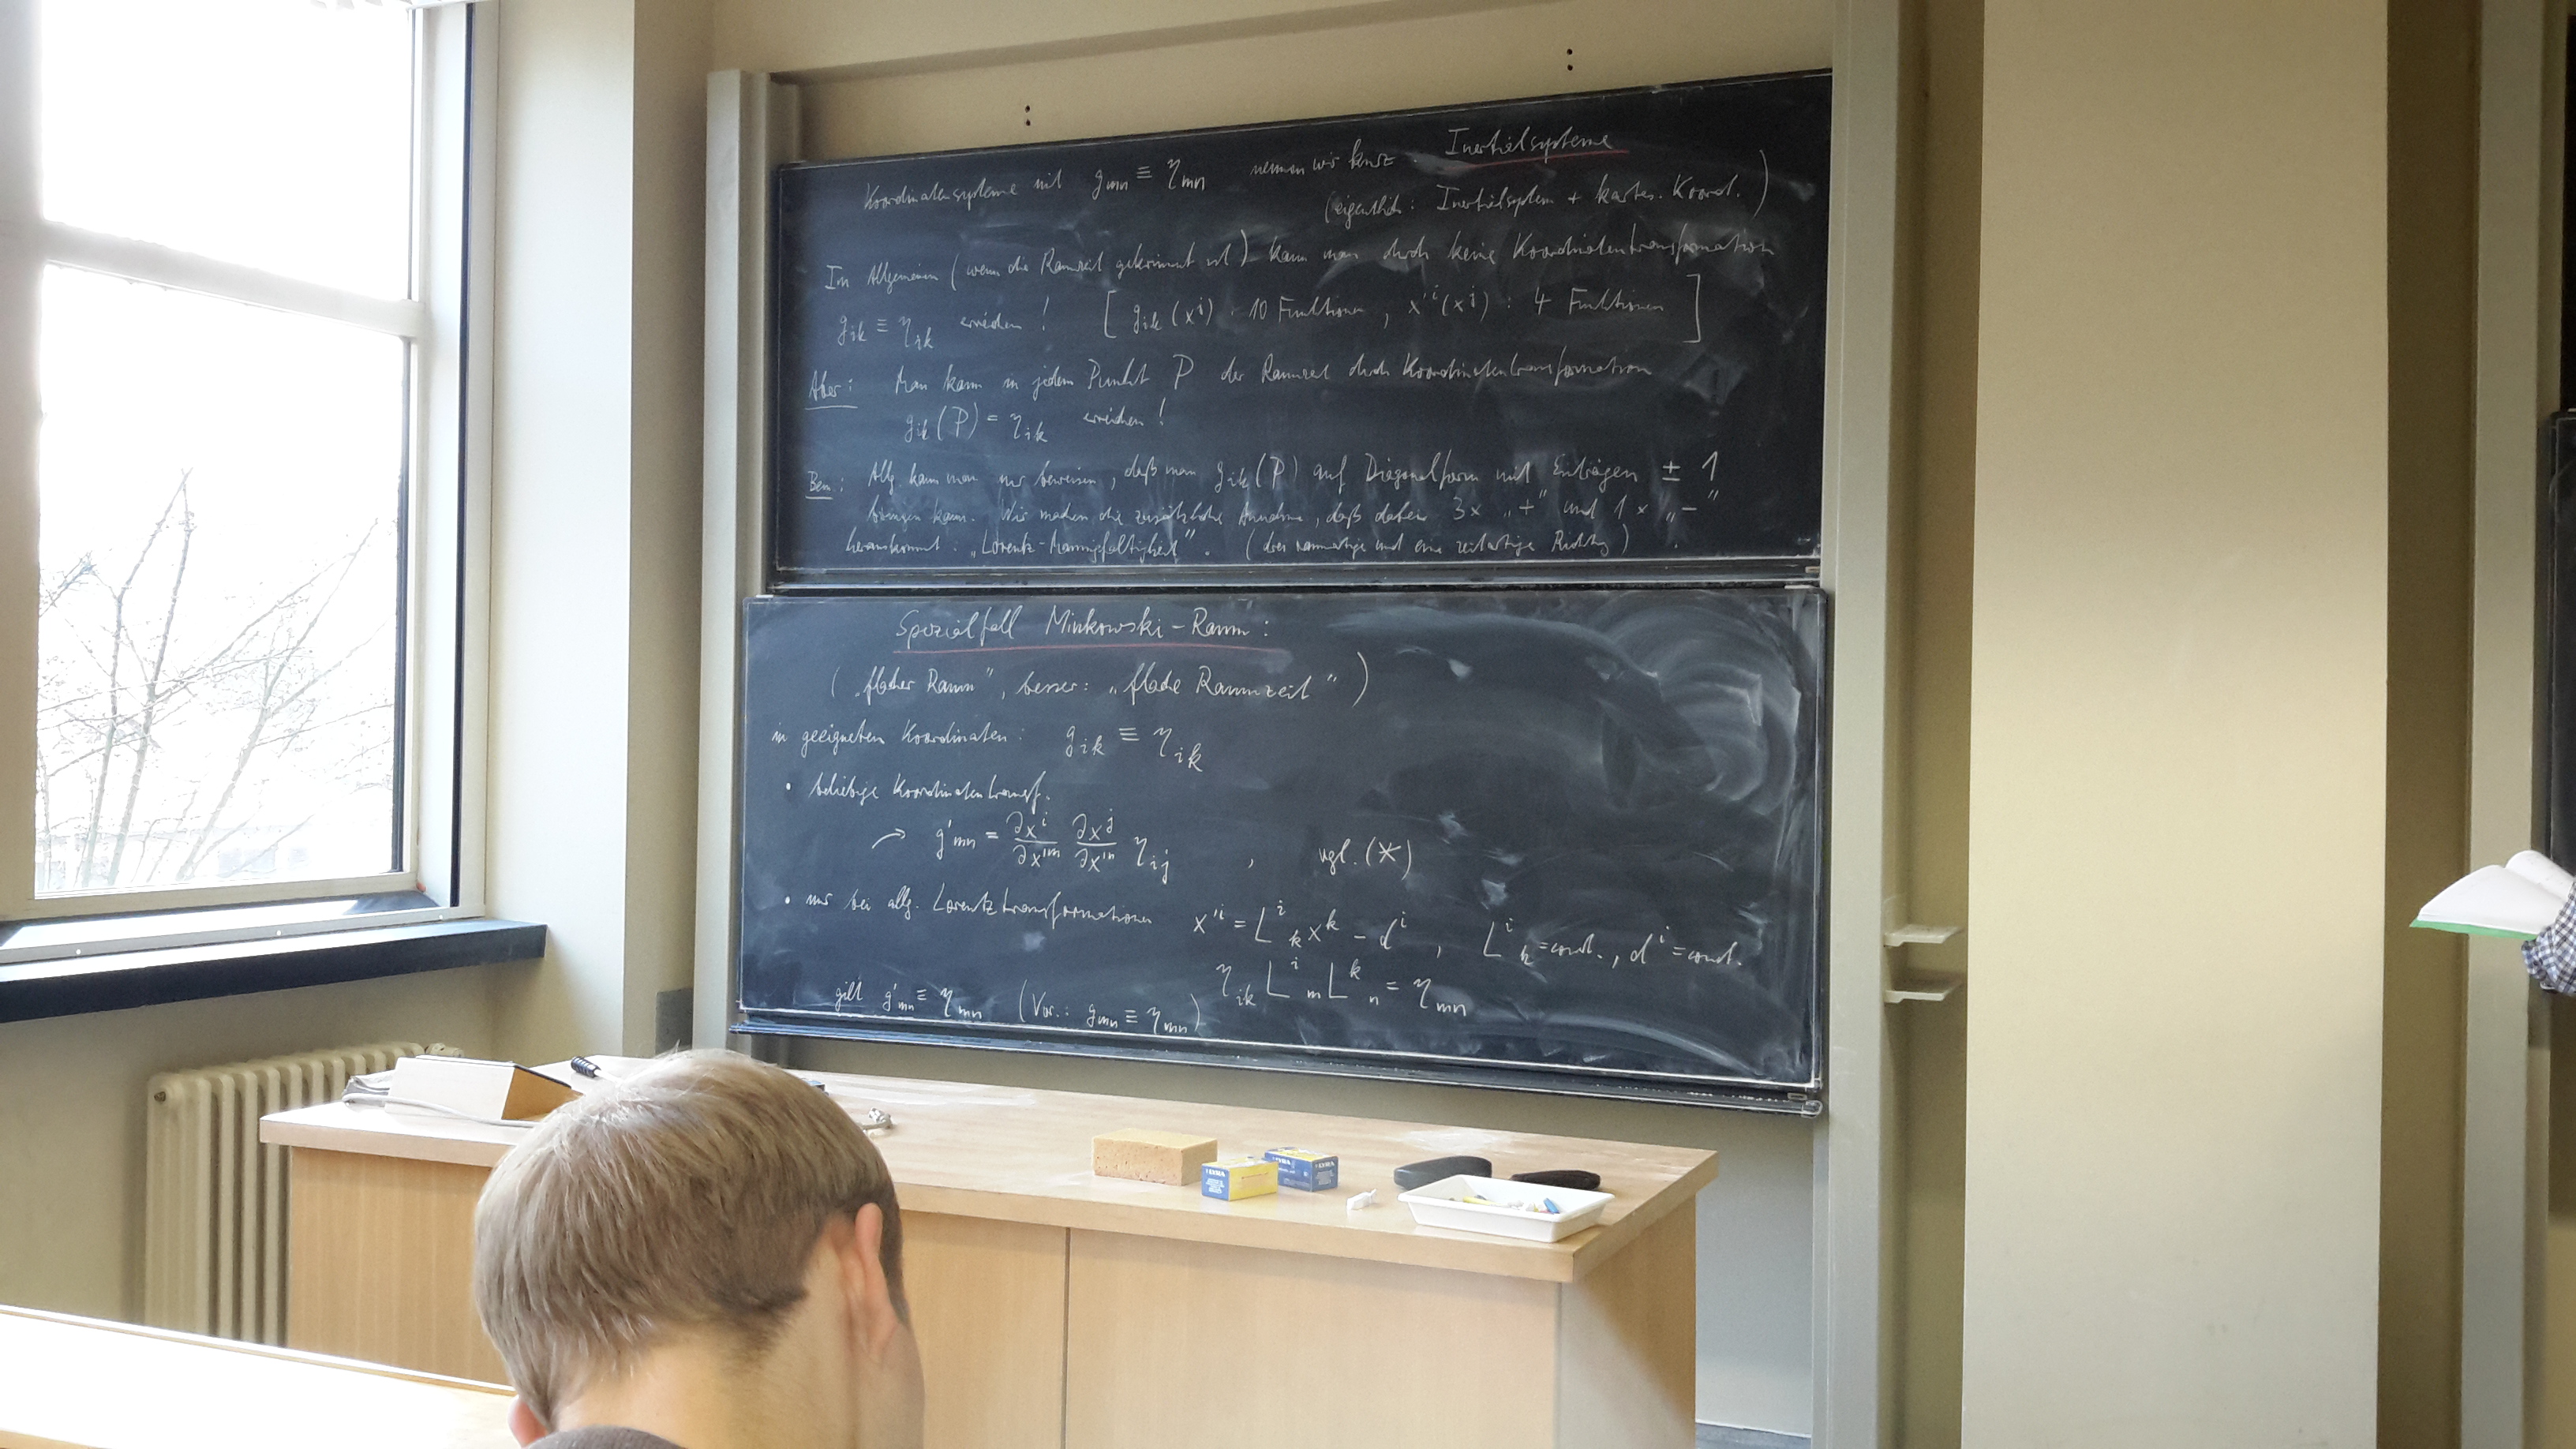 Koordinatensysteme mit g_mn ≡ η_mn nennen wir kurz Inertialsysteme
(eigentlich: Inertialsystem + kartes. Koord.)
Im Allgemeinen (wenn die Raumzeit gekrümmt ist) kann man durch keine Koordinatentransformation
g_ik ≡ η_ik erreichen! [ g_ik(x^j) : 10 Funktionen, x'^i(x^j) : 4 Funktionen ]
Aber: Man kann in jedem Punkt P der Raumzeit durch Koordinatentransformation
g_ik(P) = η_ik erreichen!
Bem.: Allg. kann man nur beweisen, daß man g_ik(P) auf Diagonalform mit Einträgen ± 1
bringen kann. Wir machen die zusätzliche Annahme, daß dabei 3x „+" und 1x „-"
herauskommt: „Lorentz-Mannigfaltigkeit". (drei raumartige und eine zeitartige Richtg)
Spezialfall Minkowski-Raum:
(„flacher Raum", besser: „flache Raumzeit")
in geeigneten Koordinaten: g_ik ≡ η_ik
• beliebige Koordinatentransf.
→ g'_mn = ∂x^i/∂x'^m ∂x^j/∂x'^n η_ij , vgl. (*)
• nur bei allg. Lorentztransformationen x'^i = L^i_k x^k - d^i , L^i_k = const., d^i = const.
η_ik L^i_m L^k_n = η_mn
gilt g'_mn ≡ η_mn (Vor.: g_mn ≡ η_mn)
LYRA
LYRA